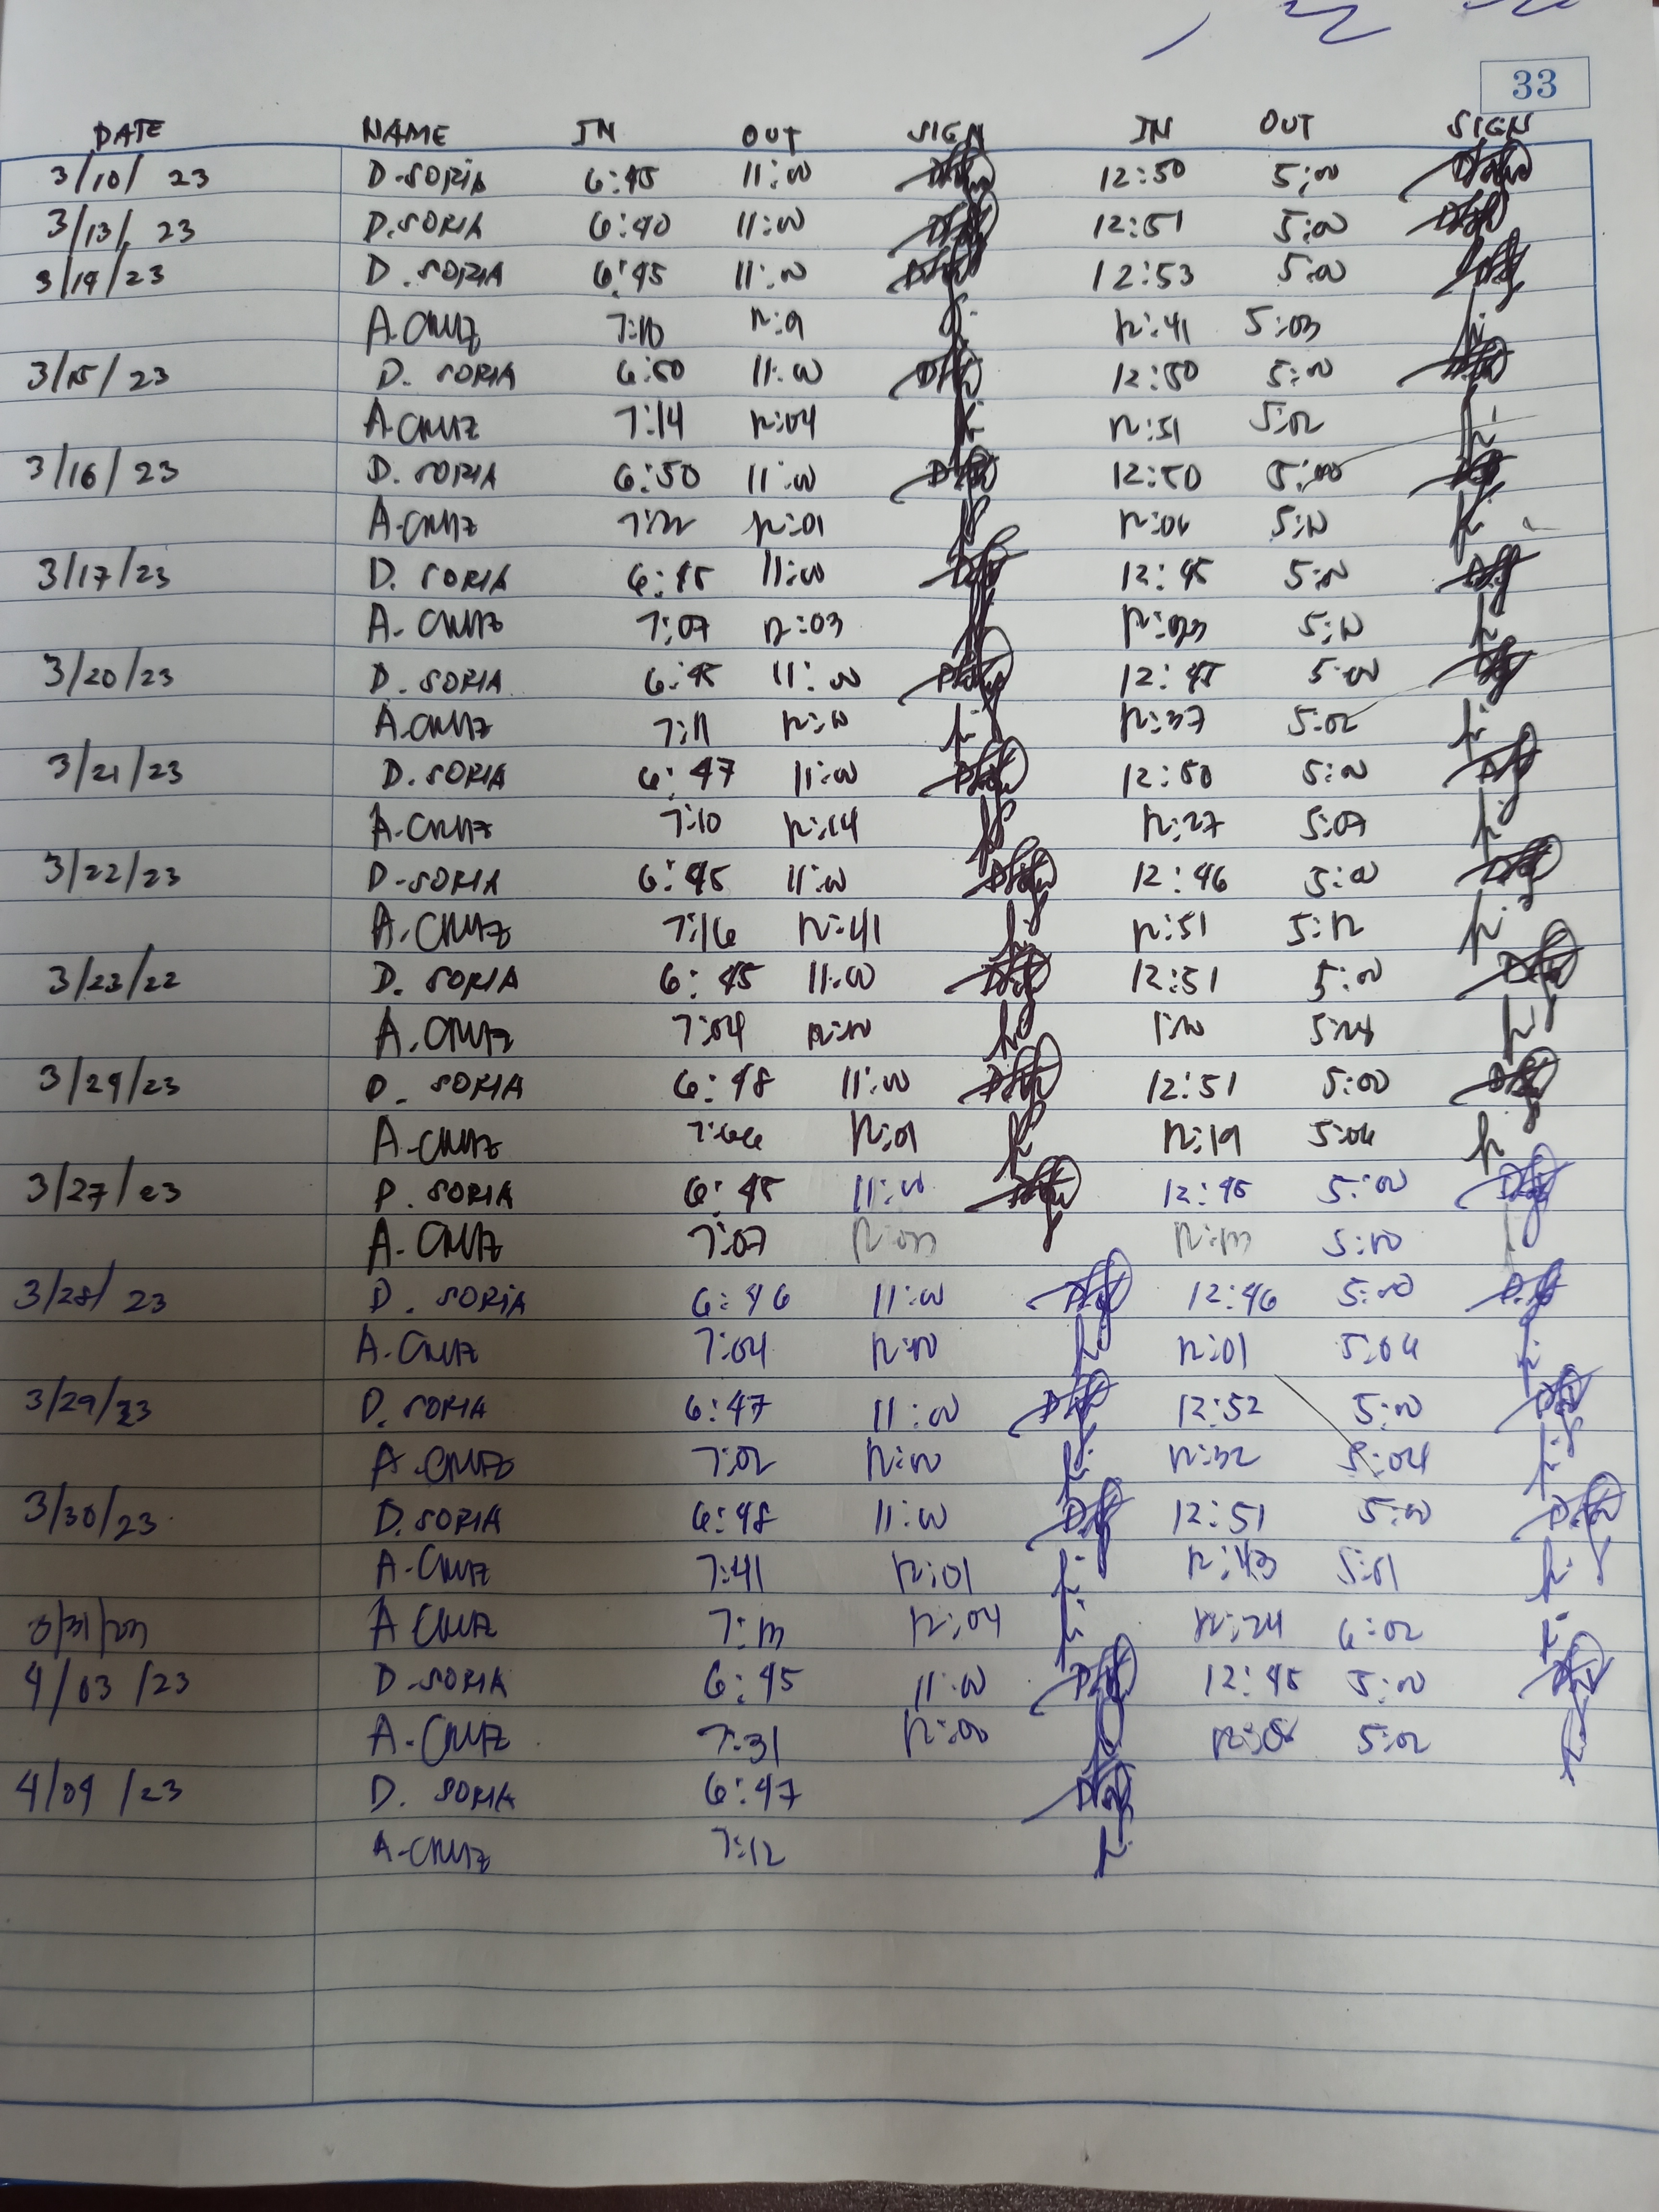 33
DATE NAME IN OUT SIGN IN OUT SIGN
3/10/23 D. SORIA 6:45 11:00 12:50 5:00
3/13/23 D. SORIA 6:40 11:00 12:51 5:00
3/14/23 D. SORIA 6:45 11:00 12:53 5:00
A. CRUZ 7:10 12:41 5:03
3/15/23 D. SORIA 6:50 11:00 12:50 5:00
A. CRUZ 7:14 12:04 12:51 5:02
3/16/23 D. SORIA 6:50 11:00 12:50 5:00
A. CRUZ 7:22 12:01 12:06
3/17/23 D. SORIA 6:45 11:00 12:45 5:00
A. CRUZ 7:07 12:03
3/20/23 D. SORIA 6:45 11:00 12:45 5:00
A. CRUZ 7:11 12:37 5:02
3/21/23 D. SORIA 6:47 11:00 12:50 5:00
A. CRUZ 7:10 12:14 12:27 5:07
3/22/23 D. SORIA 6:45 11:00 12:46 5:00
A. CRUZ 7:16 12:41 12:51 5:12
3/23/22 D. SORIA 6:45 11:00 12:51 5:00
A. CRUZ 7:04
3/24/23 D. SORIA 6:48 11:00 12:51 5:00
A. CRUZ 12:01 12:19 5:06
3/27/23 D. SORIA 6:45 11:00 12:45 5:00
A. CRUZ 7:07 5:10
3/28/23 D. SORIA 6:46 11:00 12:46 5:00
A. CRUZ 7:04 12:01 5:04
3/29/23 D. SORIA 6:47 11:00 12:52 5:00
A. CRUZ 7:02 12:32 5:04
3/30/23 D. SORIA 6:48 11:00 12:51 5:00
A. CRUZ 7:41 12:01 12:43 5:01
3/31/23 A. CRUZ 12:04 12:24 6:02
4/03/23 D. SORIA 6:45 11:00 12:45 5:00
A. CRUZ 7:31 12:00 5:02
4/04/23 D. SORIA 6:47
A. CRUZ 7:12